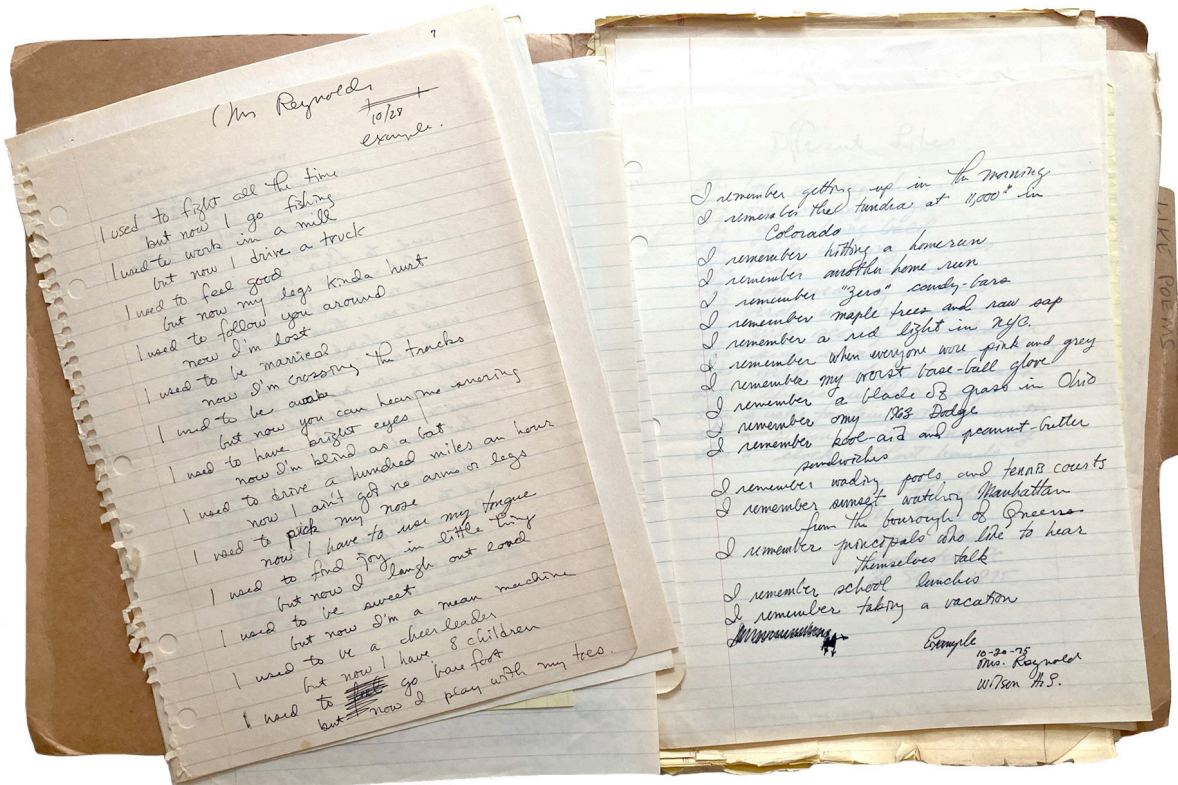 Mrs Reynolds
10/28
example.
I used to fight all the time
but now I go fishing
I used to work in a mill
but now I drive a truck
I used to feel good
but now my legs kinda hurt
I used to follow you around
now I'm lost
I used to be married
now I'm crossing the tracks
I used to be awake
but now you can hear me snoring
I used to have bright eyes
now I'm blind as a bat
I used to drive a hundred miles an hour
now I ain't got no arms or legs
I used to pick my nose
now I have to use my tongue
I used to find joy in little thing
but now I laugh out loud
I used to be sweet
but now I'm a mean machine
I used to be a cheerleader
but now I have 8 children
I used to go bare foot
but now I play with my toes.
Different Likes
I remember getting up in the morning
I remember the tundra at 11,000' in
Colorado
I remember hitting a homerun
I remember another home run
I remember "Zero" candy-bars
I remember maple trees and raw sap
I remember a red light in NYC.
I remember when everyone wore pink and grey
I remember my worst base-ball glove
I remember a blade of grass in Ohio
I remember my 1963 Dodge
I remember kool-aid and peanut-butter
sandwiches
I remember wading pools and tennis courts
I remember sunset watching Manhattan
from the bourough of Queens
I remember principals who like to hear
themselves talk
I remember school lunches
I remember taking a vacation
Example
10-20-75
Mrs. Reynolds
Wilson H.S.
LIKE POEMS